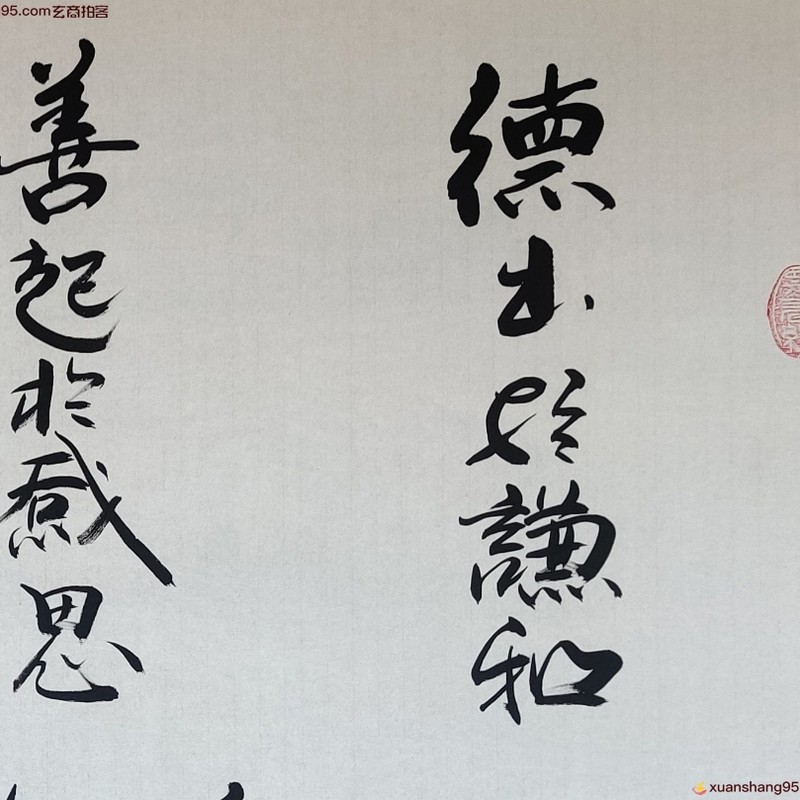 95.com玄商拍客
德出於謙和
善起於感恩
xuanshang95